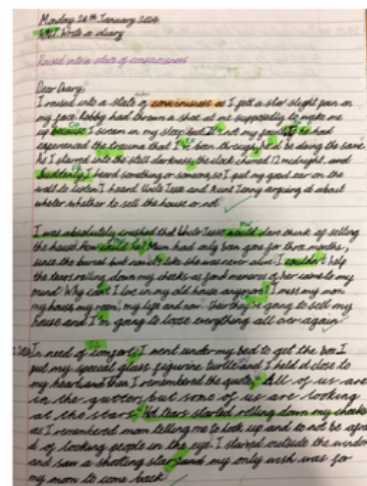 Monday 26th January 2024
Write a diary
Raised into a state of consciousness
Dear Diary,
I raised into a state of consciousness as I felt a slight pain in
my face. Lobby had thrown a shoe at me supposedly to make me
up because I scream in my sleep but it's not my fault. If he had
experienced the trauma that I've been through, he'd be doing the same.
As I stared into the still darkness, the clock chimed 12 midnight, and
suddenly I heard something or someone, so I put my good ear on the
wall to listen. I heard Uncle and Aunt Jenny arguing about
wheter whether to sell the house or not.
I was absolutely crushed that Uncle would dare think of selling
the house. How could he? Mum had only been gone for three months,
since the burial but it's like she was never alive. I couldn't help
the tears rolling down my cheeks as fond memories of her came to my
mind. Why can't I live in my old house anymore? I miss my mom
my house, my room, my life and now they're going to sell my
house and I'm going to loose everything all over again.
In need of comfort, I went under my bed to get the box I
put my special glass figurine turtle and I held it close to
my heart, and then I remembered the quote, "All of us are
in the gutter but some of us are looking
at the stars." Hot tears started rolling down my cheeks
as I remembered mom telling me to look up and to not be afrai
d of looking people in the eye. I stared outside the window
and saw a shooting star, and my only wish was for
my mom to come back.